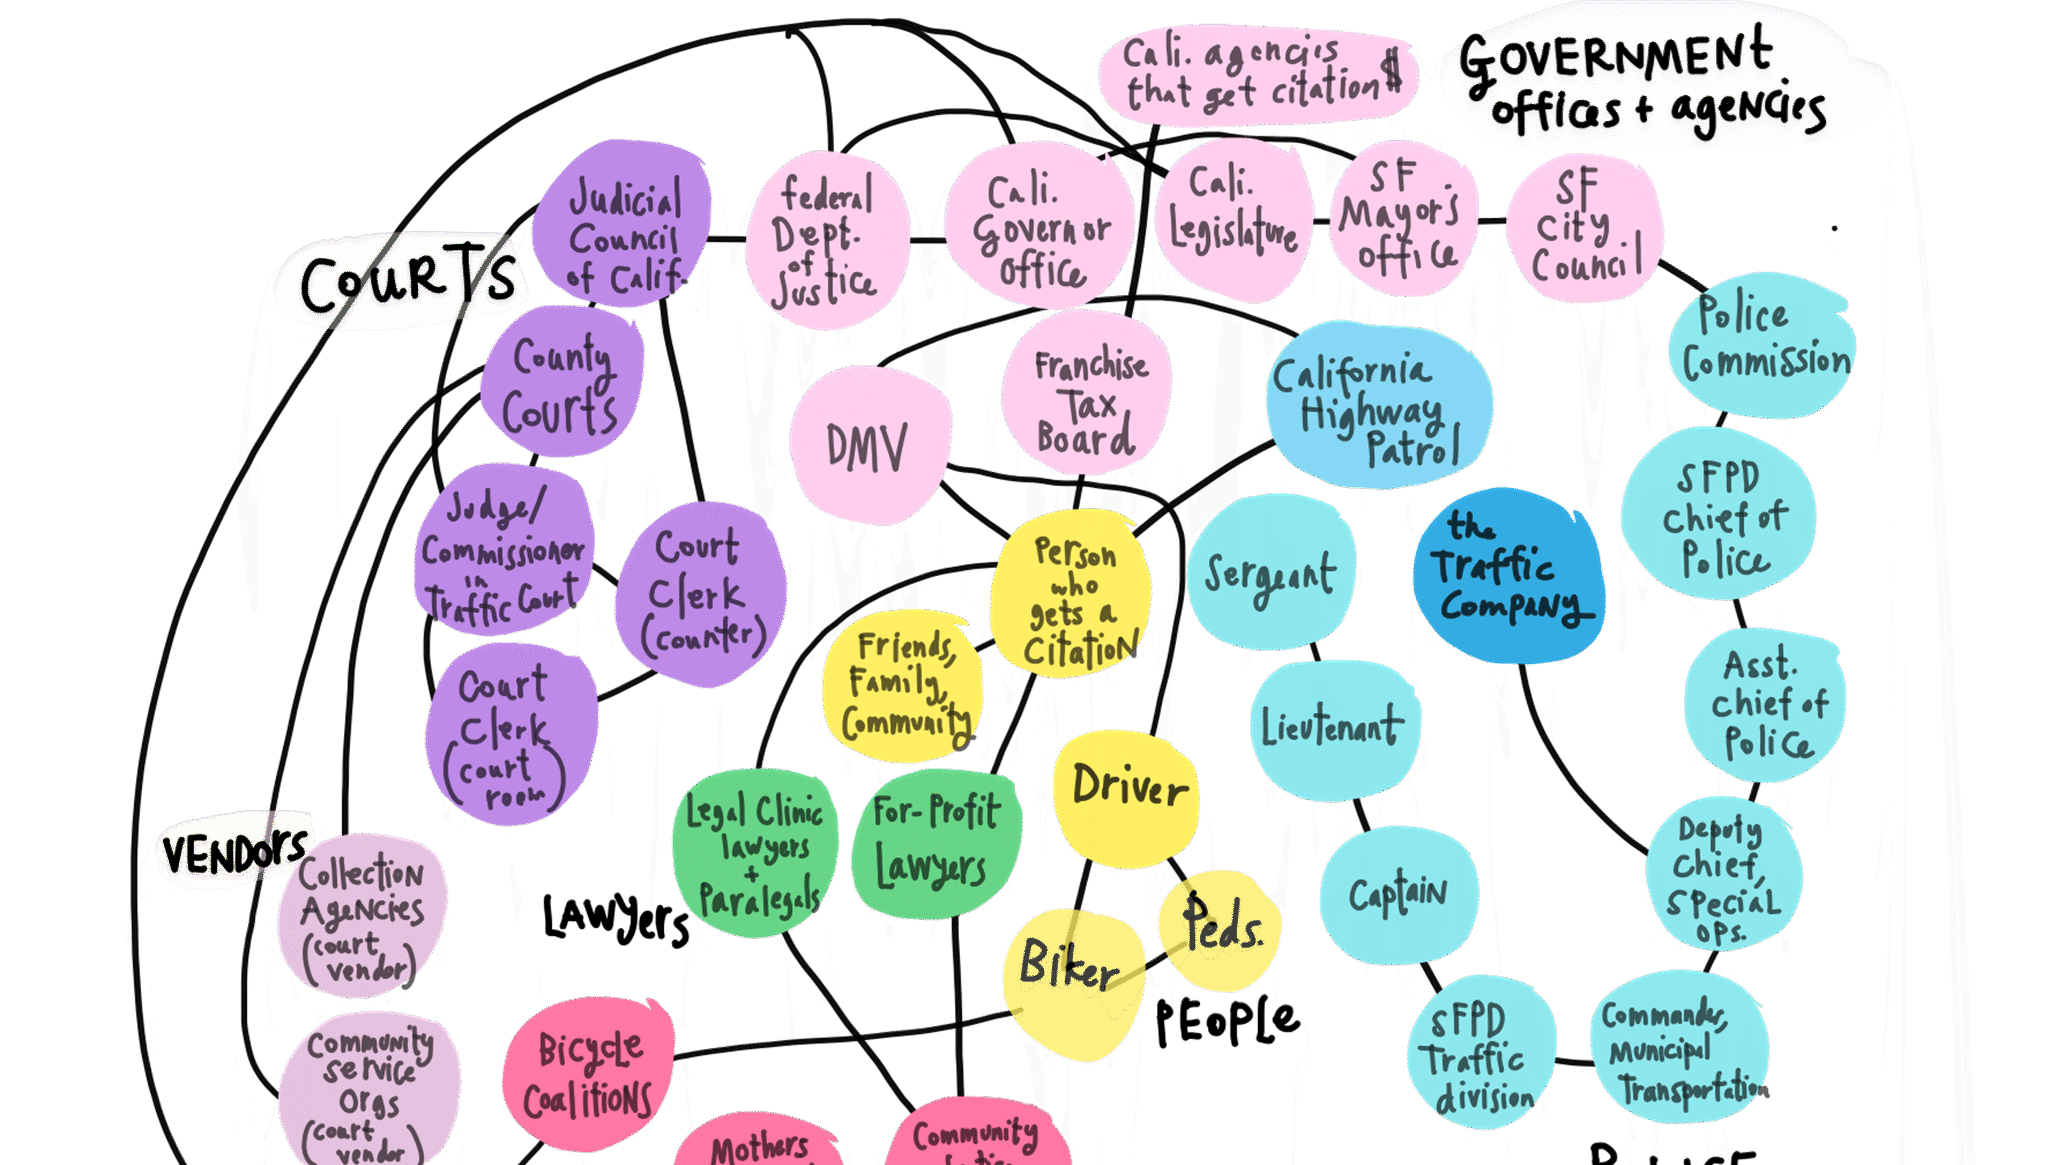 Cali. agencies
that get citation $
GOVERNMENT
offices + agencies
COURTS
Judicial
Council
of Calif.
federal
Dept.
of
Justice
Cali.
Governor
office
Cali.
Legislature
SF
Mayor's
office
SF
City
Council
Police
Commission
County
Courts
DMV
Franchise
Tax
Board
California
Highway
Patrol
SFPD
chief of
Police
Judge/
Commissioner
in
Traffic Court
Court
Clerk
(counter)
Person
who
gets a
Citation
Sergeant
the
Traffic
Company
Friends,
Family,
Community
Asst.
chief of
Police
Court
Clerk
(court
room)
Lieutenant
Driver
Legal Clinic
lawyers
+
Paralegals
For-Profit
Lawyers
Deputy
Chief,
special
ops.
VENDORS
Collection
Agencies
(court
vendor)
LAWYERS
Captain
Biker
Peds.
PEOPLE
SFPD
Traffic
division
Commander,
Municipal
Transportation
Community
service
Orgs
(court
vendor)
Bicycle
Coalitions
Mothers
Community